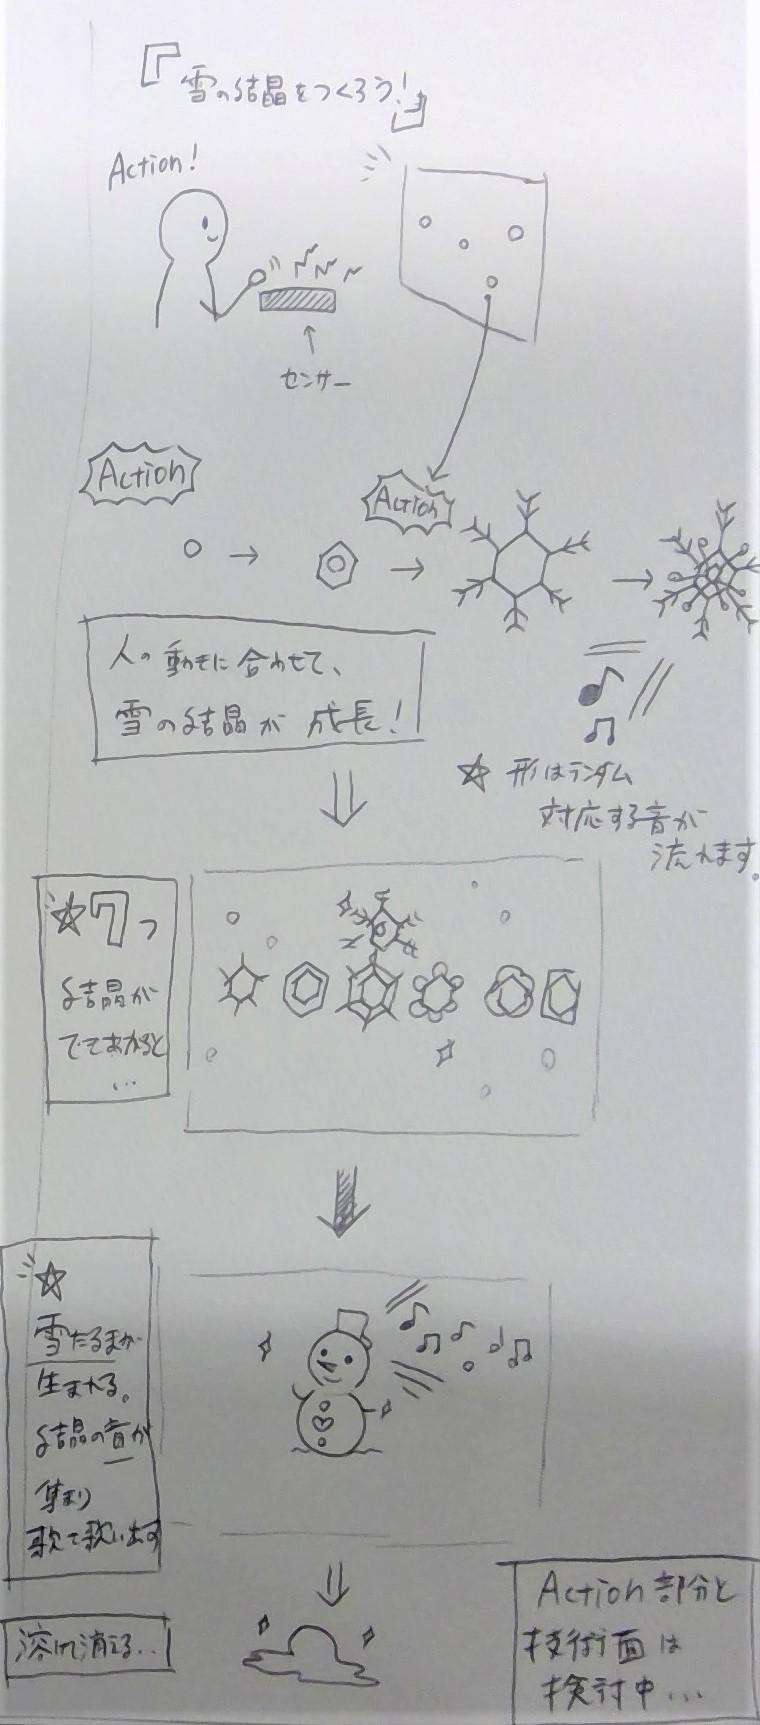 『雪の結晶をつくろう!』
Action!
センサー
Action
Action
人の動きに合わせて、
雪の結晶が 成長!
☆ 形はランダム
対応する音が
流れます。
☆7つ
結晶が
でてあがると
...
☆
雪だるまが
生まれる。
結晶の音が
集まり
歌い出す
溶け消える...
Action部分と
技術面は
検討中...